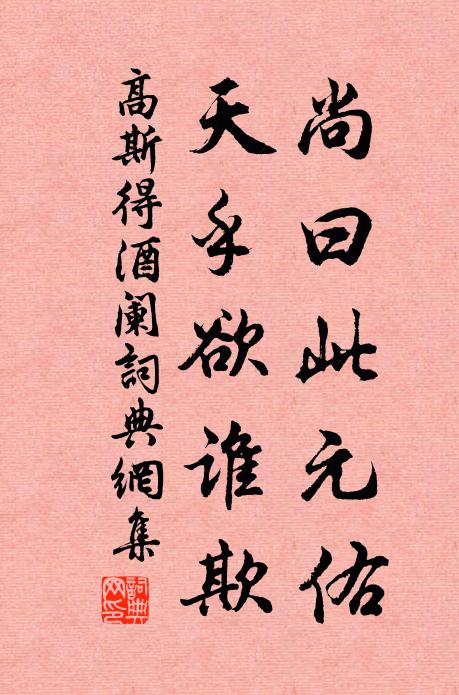 尚曰此元佑
天乎欲谁欺
高斯得酒阑詞典網集
詞典網印